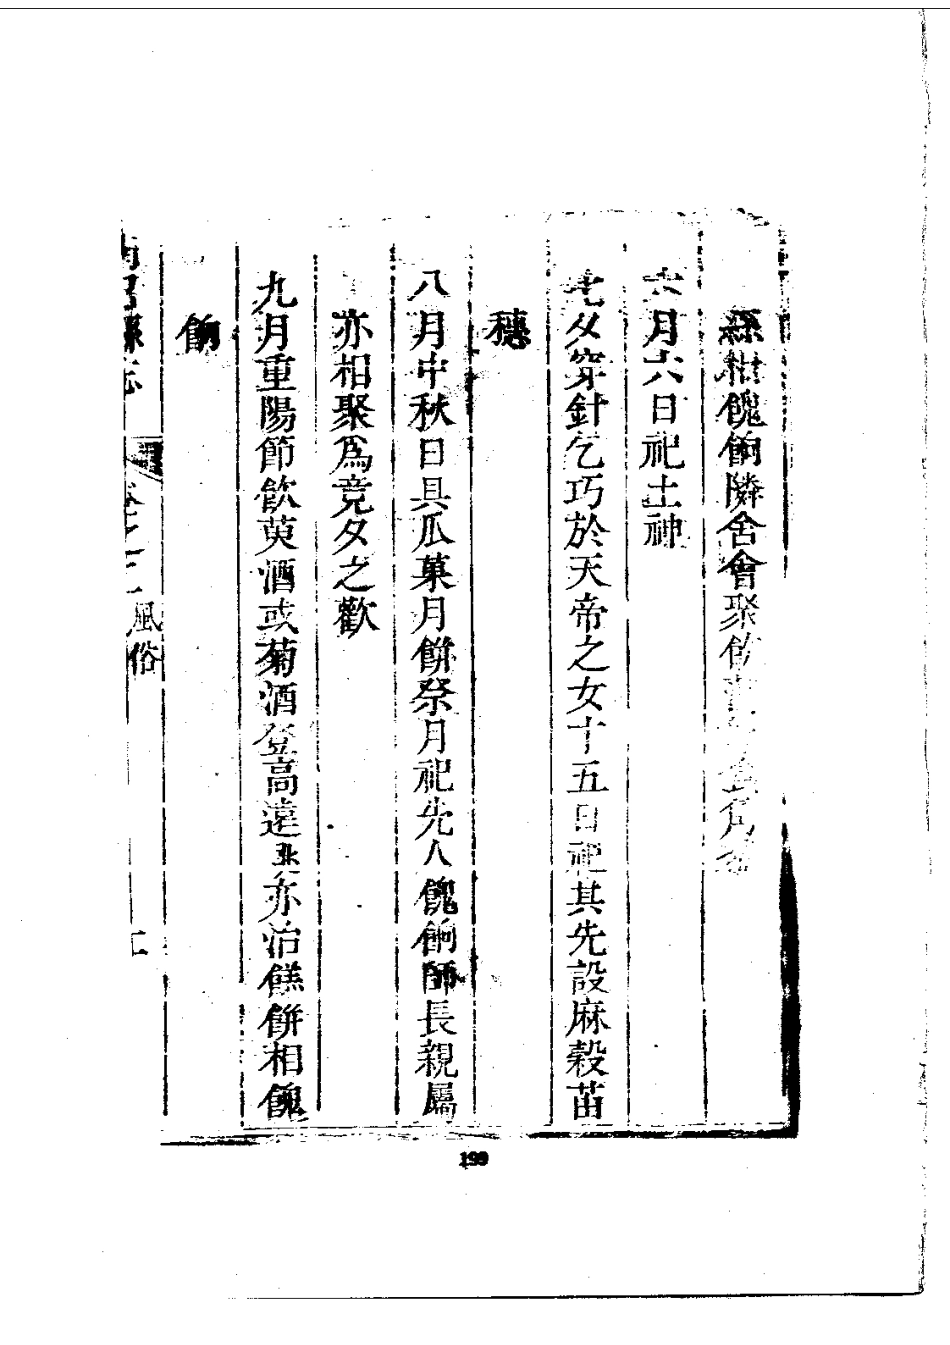 相餽餉隣舍會聚飲
六月六日祀土神
七夕穿針乞巧於天帝之女十五日祀其先設麻穀苗
穗
八月中秋日具瓜菓月餅祭月祀先人餽餉師長親屬
亦相聚爲竟夕之歡
九月重陽節飲萸酒或菊酒登高遠亦治餻餅相餽
餉
風俗
199